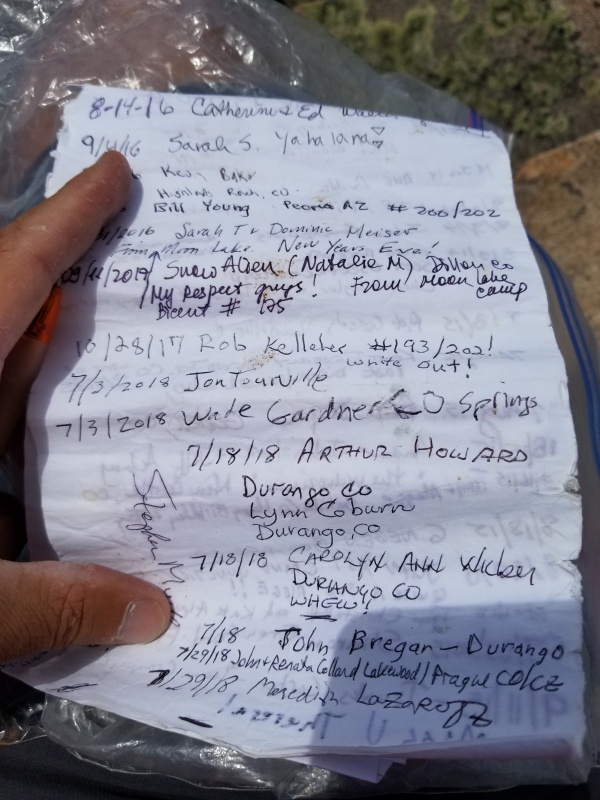 8-14-16 Catherine & Ed
9/4/16 Sarah S. Yahalana
Highlands Ranch, CO.
Bill Young Peoria AZ #200/202
/2016 Sarah T & Dominic Meiser
From Moon Lake New Years Eve!
2017 Snow Alien (Natalie M) Dillon CO
My respect guys! From Moon Lake camp
Bicent # 175
10/28/17 Rob Kelleher #193/202!
white out!
7/3/2018 Jon Tourville
7/3/2018 Wade Gardner CO Springs
7/18/18 ARTHUR HOWARD
Durango CO
Lynn Coburn
Durango, CO
Stephen
7/18/18 CAROLYN ANN
DURANGO CO
WHEW!
7/18 John Bregar - Durango
7/29/18 John & Renata Collard Lakewood / Prague CO/CZ
7/29/18 Meredith Lazaroff